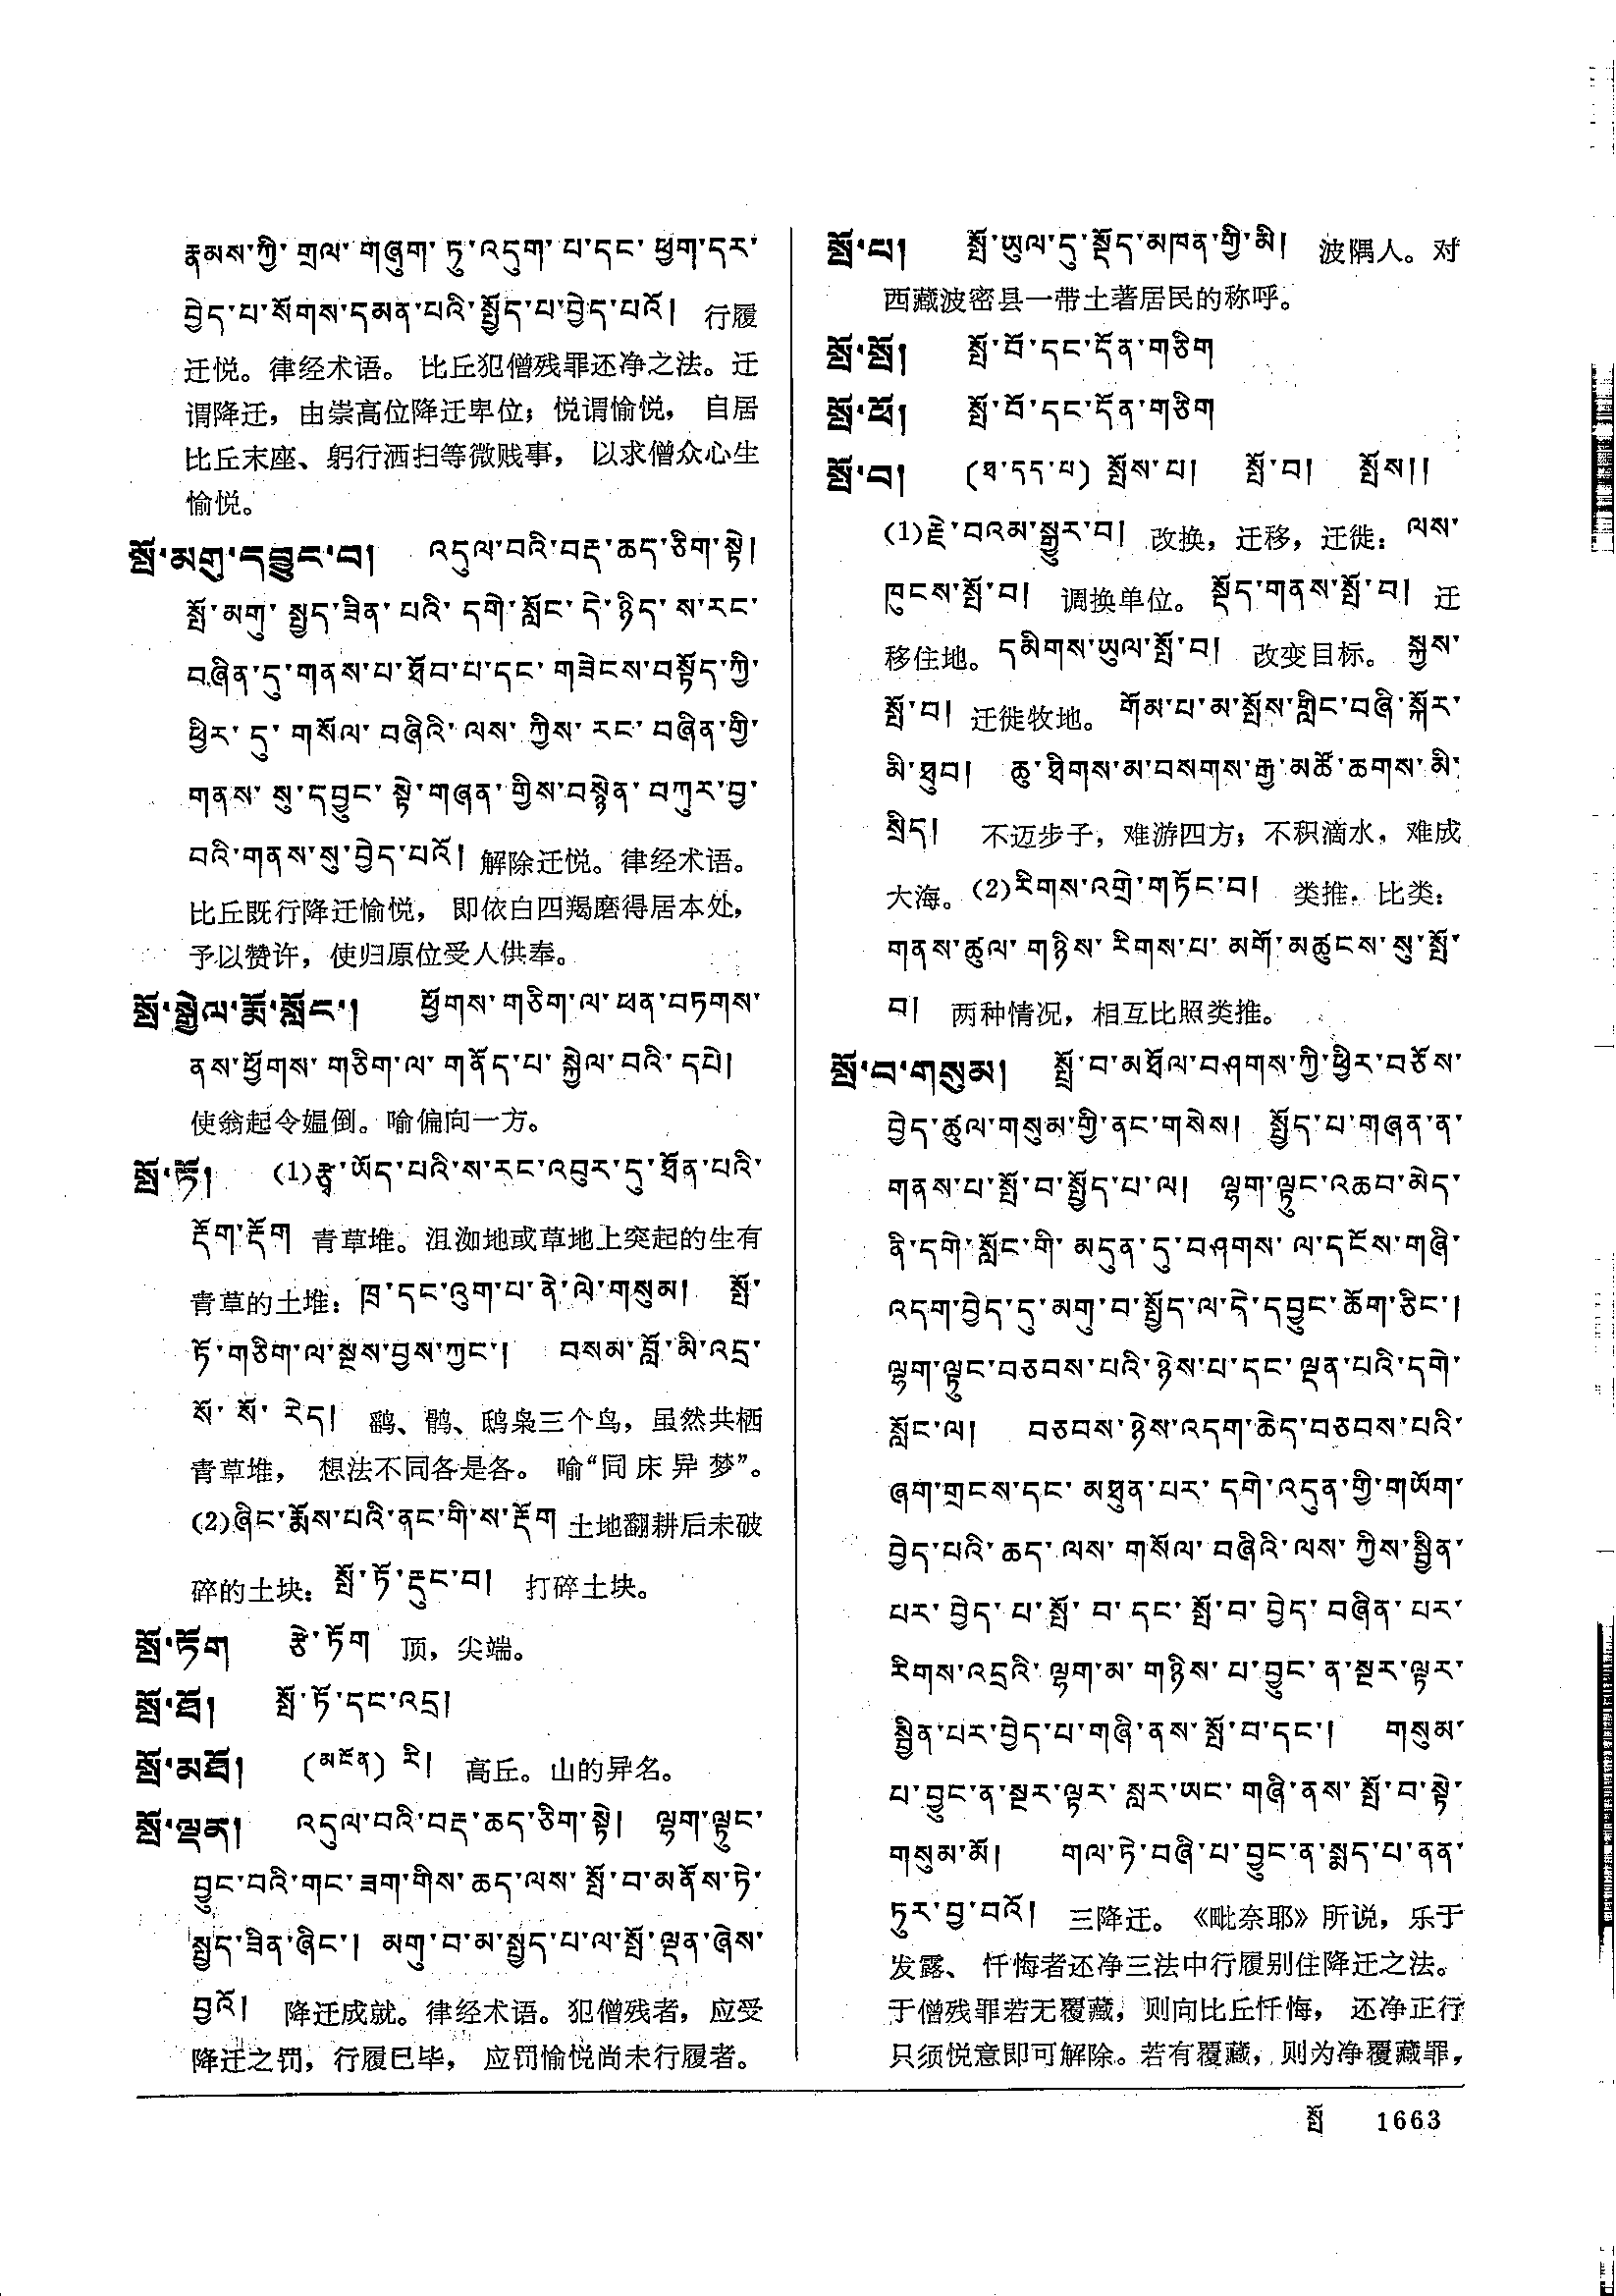 རྣམས་ཀྱི་གྲལ་གཞུག་ཏུ་འདུག་པ་དང་ཕྱག་དར་
བྱེད་པ་སོགས་དམན་པའི་སྤྱོད་པ་བྱེད་པའོ། 行履
迁悦。律经术语。比丘犯僧残罪还净之法。迁
谓降迁，由崇高位降迁卑位；悦谓愉悦，自居
比丘末座、躬行洒扫等微贱事，以求僧众心生
愉悦。
སྤོ་མགུ་དབྱུང་བ། འདུལ་བའི་བརྡ་ཆད་ཅིག་སྟེ།
སྤོ་མགུ་སྤྱད་ཟིན་པའི་དགེ་སློང་དེ་ཉིད་ས་རང་
བཞིན་དུ་གནས་པ་ཐོབ་པ་དང་གཟེངས་བསྟོད་ཀྱི་
ཕྱིར་དུ་གསོལ་བཞིའི་ལས་ཀྱིས་རང་བཞིན་གྱི་
གནས་སུ་དབྱུང་སྟེ་གཞན་གྱིས་བསྙེན་བཀུར་བྱ་
བའི་གནས་སུ་བྱེད་པའོ། 解除迁悦。律经术语。
比丘既行降迁愉悦，即依白四羯磨得居本处，
予以赞许，使归原位受人供奉。
སྤོ་སྒྱེལ་རྨོ་སློང་། ཕྱོགས་གཅིག་ལ་ཕན་བཏགས་
ནས་ཕྱོགས་གཅིག་ལ་གནོད་པ་སྐྱེལ་བའི་དཔེ།
使翁起令媪倒。喻偏向一方。
སྤོ་ཏོ། (1)རྩྭ་ཡོད་པའི་ས་རང་འབུར་དུ་ཐོན་པའི་
རྡོག་རྡོག 青草堆。沮洳地或草地上突起的生有
青草的土堆：ཁྲ་དང་འུག་པ་ནེ་ལེ་གསུམ། སྤོ་
ཏོ་གཅིག་ལ་སྡས་བྱས་ཀྱང་། བསམ་བློ་མི་འདྲ་
སོ་སོ་རེད། 鹞、鹘、鸱枭三个鸟，虽然共栖
青草堆，想法不同各是各。喻“同床异梦”。
(2)ཞིང་རྨོས་པའི་ནང་གི་ས་རྡོག 土地翻耕后未破
碎的土块：སྤོ་ཏོ་རྡུང་བ། 打碎土块。
སྤོ་ཏོག རྩེ་ཏོག 顶，尖端。
སྤོ་ཐོ། སྤོ་ཏོ་དང་འདྲ།
སྤོ་མཐོ། (མངོན) རི། 高丘。山的异名。
སྤོ་ལྡན། འདུལ་བའི་བརྡ་ཆད་ཅིག་སྟེ། ལྷག་ལྟུང་
བྱུང་བའི་གང་ཟག་གིས་ཆད་ལས་སྤོ་བ་མནོས་ཏེ་
སྤྱད་ཟིན་ཞིང་། མགུ་བ་མ་སྤྱད་པ་ལ་སྤོ་ལྡན་ཞེས་
བྱའོ། 降迁成就。律经术语。犯僧残者，应受
降迁之罚，行履已毕，应罚愉悦尚未行履者。
སྤོ་པ། སྤོ་ཡུལ་དུ་སྡོད་མཁན་གྱི་མི། 波隅人。对
西藏波密县一带土著居民的称呼。
སྤོ་སྤོ། སྤོ་བོ་དང་དོན་གཅིག
སྤོ་ཕོ། སྤོ་བོ་དང་དོན་གཅིག
སྤོ་བ། (ཐ་དད་པ) སྤོས་པ། སྤོ་བ། སྤོས།།
(1)རྗེ་བའམ་སྒྱུར་བ། 改换，迁移，迁徙：ལས་
ཁུངས་སྤོ་བ། 调换单位。སྡོད་གནས་སྤོ་བ། 迁
移住地。དམིགས་ཡུལ་སྤོ་བ། 改变目标。སྐྱས་
སྤོ་བ། 迁徙牧地。གོམ་པ་མ་སྤོས་གླིང་བཞི་སྐོར་
མི་ཐུབ། ཆུ་ཐིགས་མ་བསགས་རྒྱ་མཚོ་ཆགས་མི་
སྲིད། 不迈步子，难游四方；不积滴水，难成
大海。(2)རིགས་འགྲེ་གཏོང་བ། 类推，比类：
གནས་ཚུལ་གཉིས་རིགས་པ་མགོ་མཚུངས་སུ་སྤོ་
བ། 两种情况，相互比照类推。
སྤོ་བ་གསུམ། སྤྲོ་བ་མཐོལ་བཤགས་ཀྱི་ཕྱིར་བཅོས་
བྱེད་ཚུལ་གསུམ་གྱི་ནང་གསེས། སྤྱོད་པ་གཞན་ན་
གནས་པ་སྤོ་བ་སྤྱོད་པ་ལ། ལྷག་ལྟུང་འཆབ་མེད་
ནི་དགེ་སློང་གི་མདུན་དུ་བཤགས་ལ་དངོས་གཞི་
འདག་བྱེད་དུ་མགུ་བ་སྤྱོད་ལ་དེ་དབྱུང་ཆོག་ཅིང་།
ལྷག་ལྟུང་བཅབས་པའི་ཉེས་པ་དང་ལྡན་པའི་དགེ་
སློང་ལ། བཅབས་ཉེས་འདག་ཆེད་བཅབས་པའི་
ཞག་གྲངས་དང་མཐུན་པར་དགེ་འདུན་གྱི་གཡོག་
བྱེད་པའི་ཆད་ལས་གསོལ་བཞིའི་ལས་ཀྱིས་སྦྱིན་
པར་བྱེད་པ་སྤོ་བ་དང་སྤོ་བ་བྱེད་བཞིན་པར་
རིགས་འདྲའི་ལྷག་མ་གཉིས་པ་བྱུང་ན་སྔར་ལྟར་
སྦྱིན་པར་བྱེད་པ་གཞི་ནས་སྤོ་བ་དང་། གསུམ་
པ་བྱུང་ན་སྔར་ལྟར་སླར་ཡང་གཞི་ནས་སྤོ་བ་སྟེ་
གསུམ་མོ། གལ་ཏེ་བཞི་པ་བྱུང་ན་སྨད་པ་ནན་
ཏུར་བྱ་བའོ། 三降迁。《毗奈耶》所说，乐于
发露、忏悔者还净三法中行履别住降迁之法。
于僧残罪若无覆藏，则向比丘忏悔，还净正行
只须悦意即可解除。若有覆藏，则为净覆藏罪，
སྤོ 1663